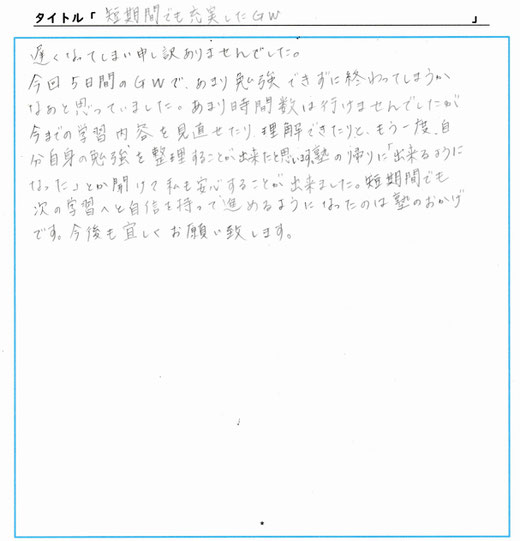 タイトル「短期間でも充実したGW」
遅くなってしまい申し訳ありませんでした。
今回5日間のGWで、あまり勉強できずに終わってしまうか
なぁと思っていました。あまり時間数は行けませんでしたが
今までの学習内容を見直せたり、理解できたりと、もう一度、自
分自身の勉強を整理することが出来たと思います。塾の帰りに「出来るように
なった」とか聞けて私も安心することが出来ました。短期間でも
次の学習へと自信を持って進めるようになったのは塾のおかげ
です。今後も宜しくお願い致します。